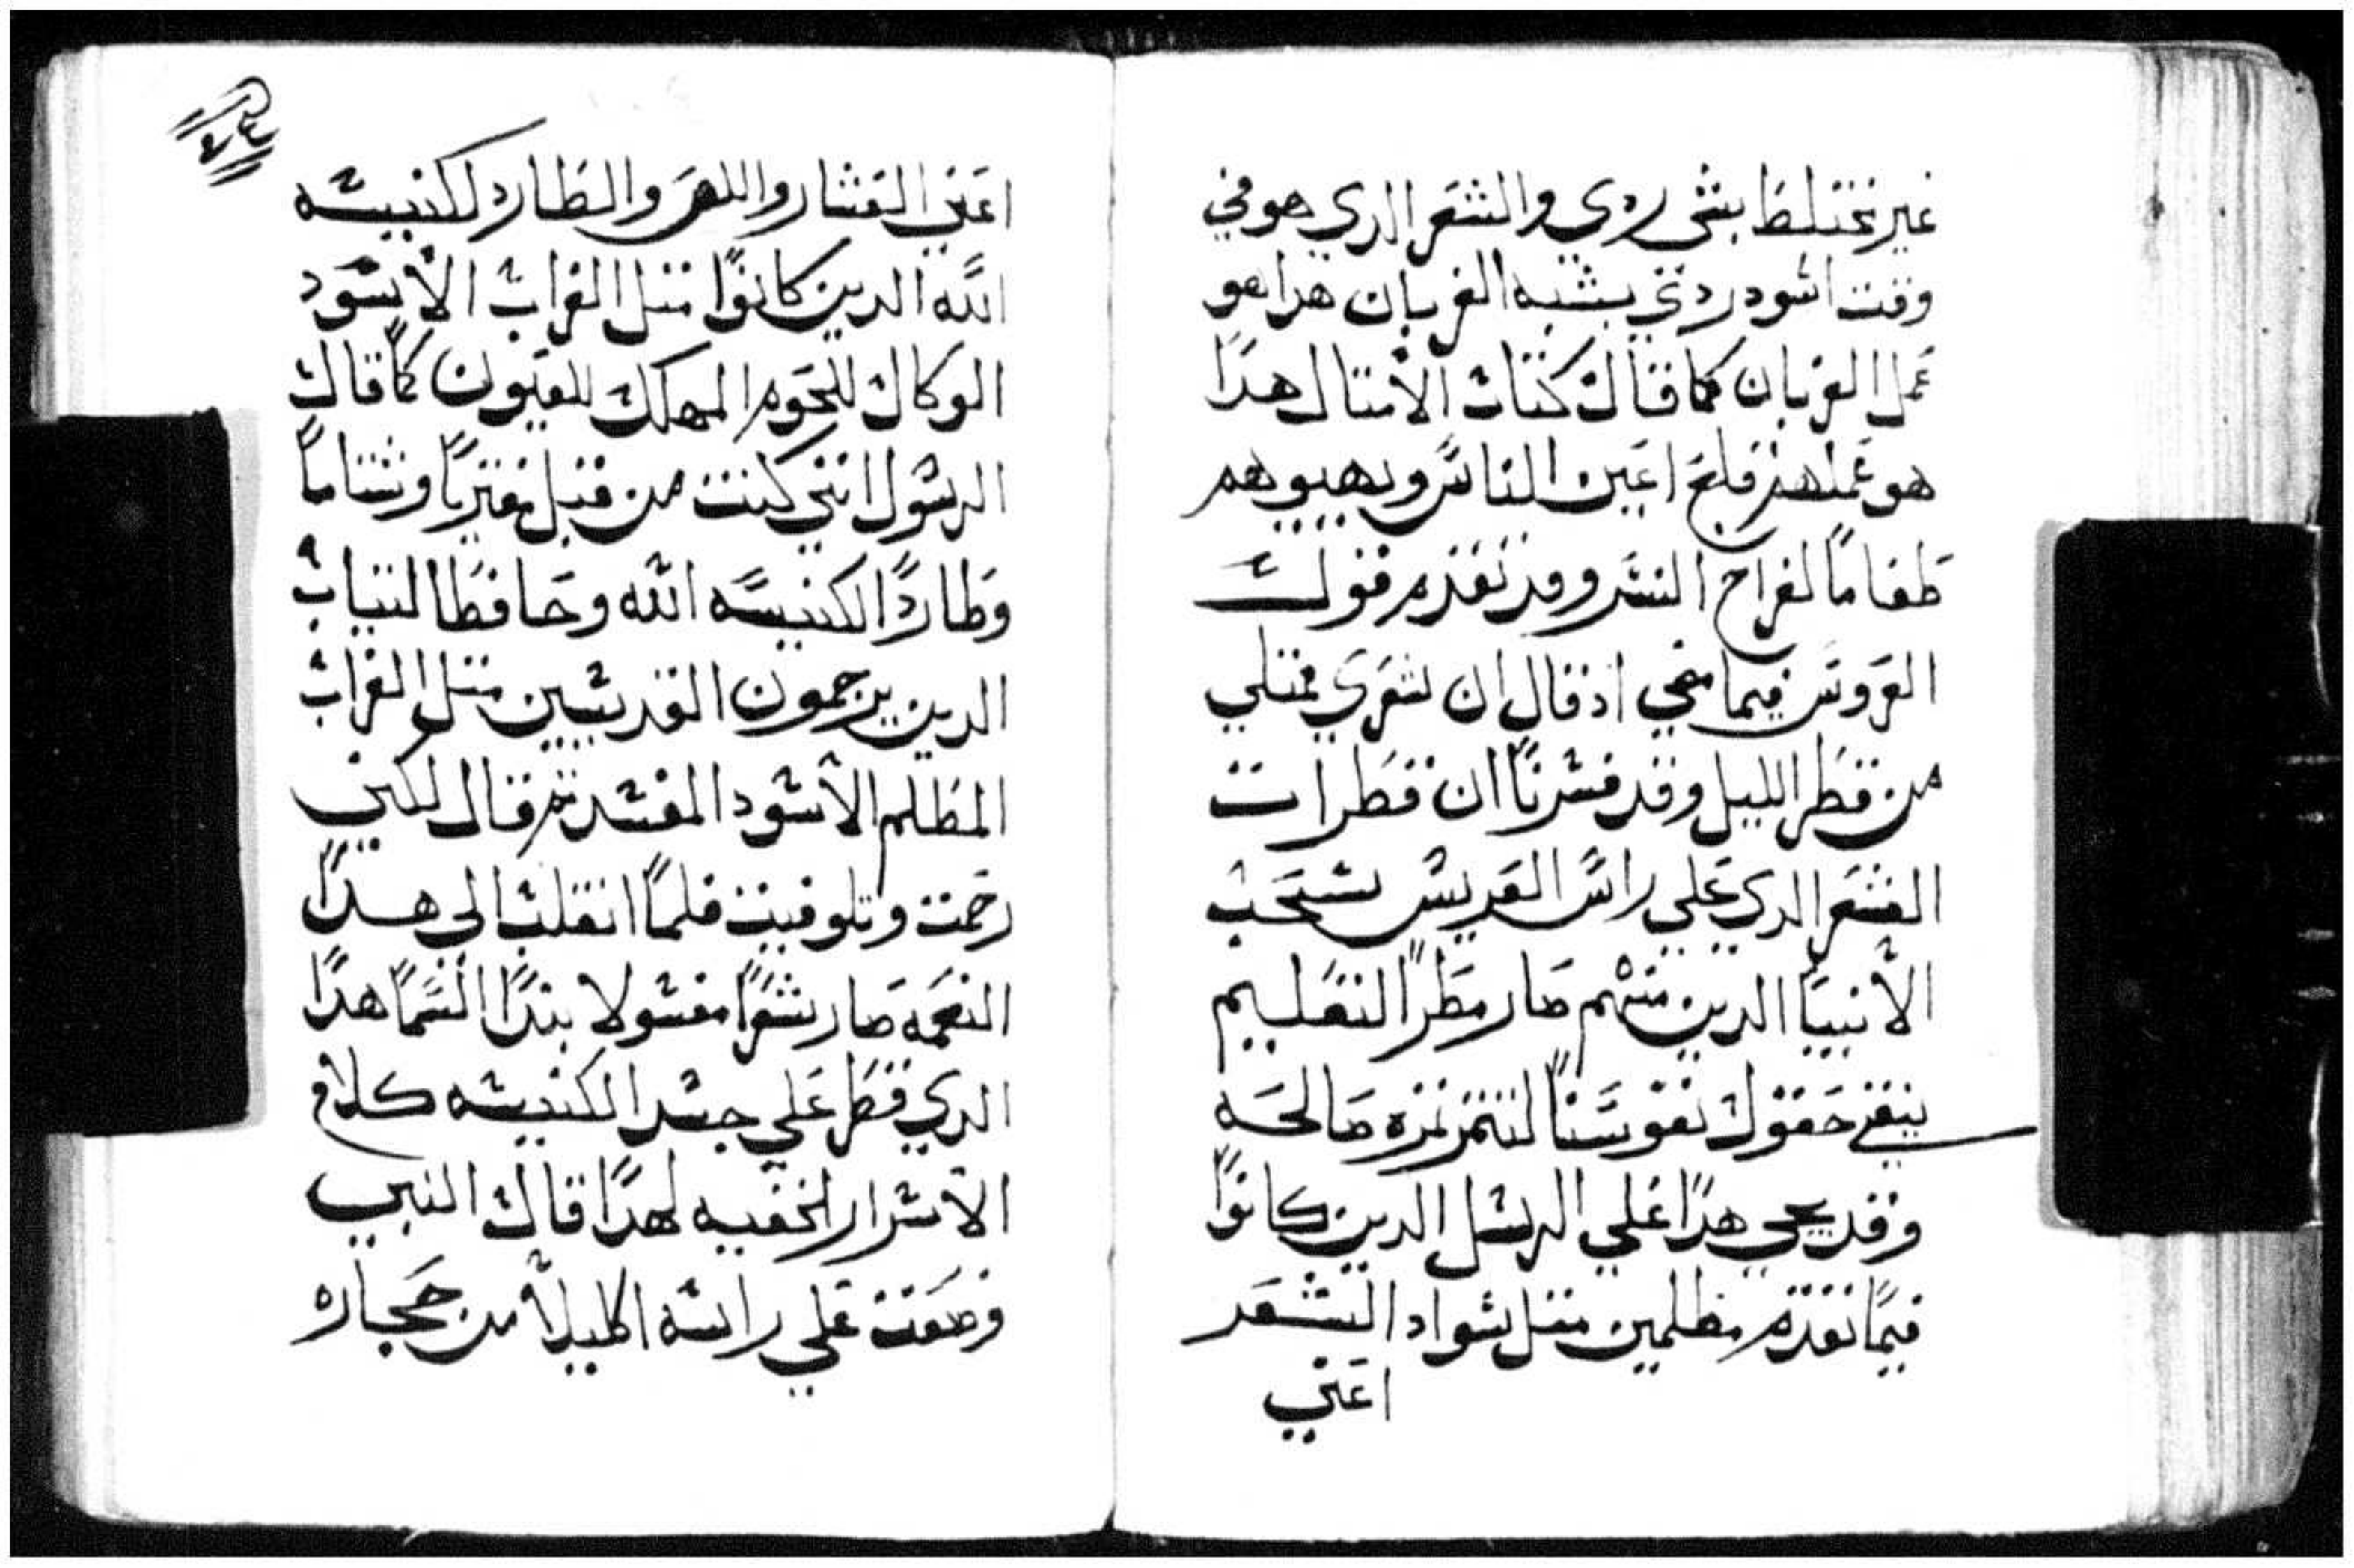 غير مختلط بشي ردي والشعر الدي هو في
وقت اسود ردي يشبه الغربان هدا هو
عمل الغربان كما قال كتاب الامتال هدا
هو عملهم قلع اعين الناس ويهيوهم
طعاماً لفراخ النسر وقد تقدم قول
العروس فيما مضي اد قال ان شعري ممتلي
من قطر الليل وقد فسرنا ان قطرات
الشعر الدي علي راس العريس سحب
الأنبيا الدين منهم صار مطر التعليم
يسقي حقول نفوسنا لتتمر تمره صالحه
وقد يجي هدا علي الرسل الدين كانوا
فيما تقدم مظلمين متل سواد الشعر
اعني
اعني العشار واللص والطارد لكنيسه
الله الدين كانوا متل الغراب الأسود
الوكال للحوم المهلك للعيون كما قال
الرسول انني كنت من قبل مفترياً وشتاماً
وطارداً لكنيسه الله وحافظاً لتياب
الدين يرجمون القديسين متل الغراب
المظلم الأسود المفسد تم قال لكني
رحمت وتلوفيت فلما انقلب الي هدا
النعمه صار شعراً مغسولا بندا السما هدا
الدي قطر علي جسد الكنيسه كلام
الاسرار الخفيه لهدا قال النبي
وضعت علي راسه اكليلاً من حجاره